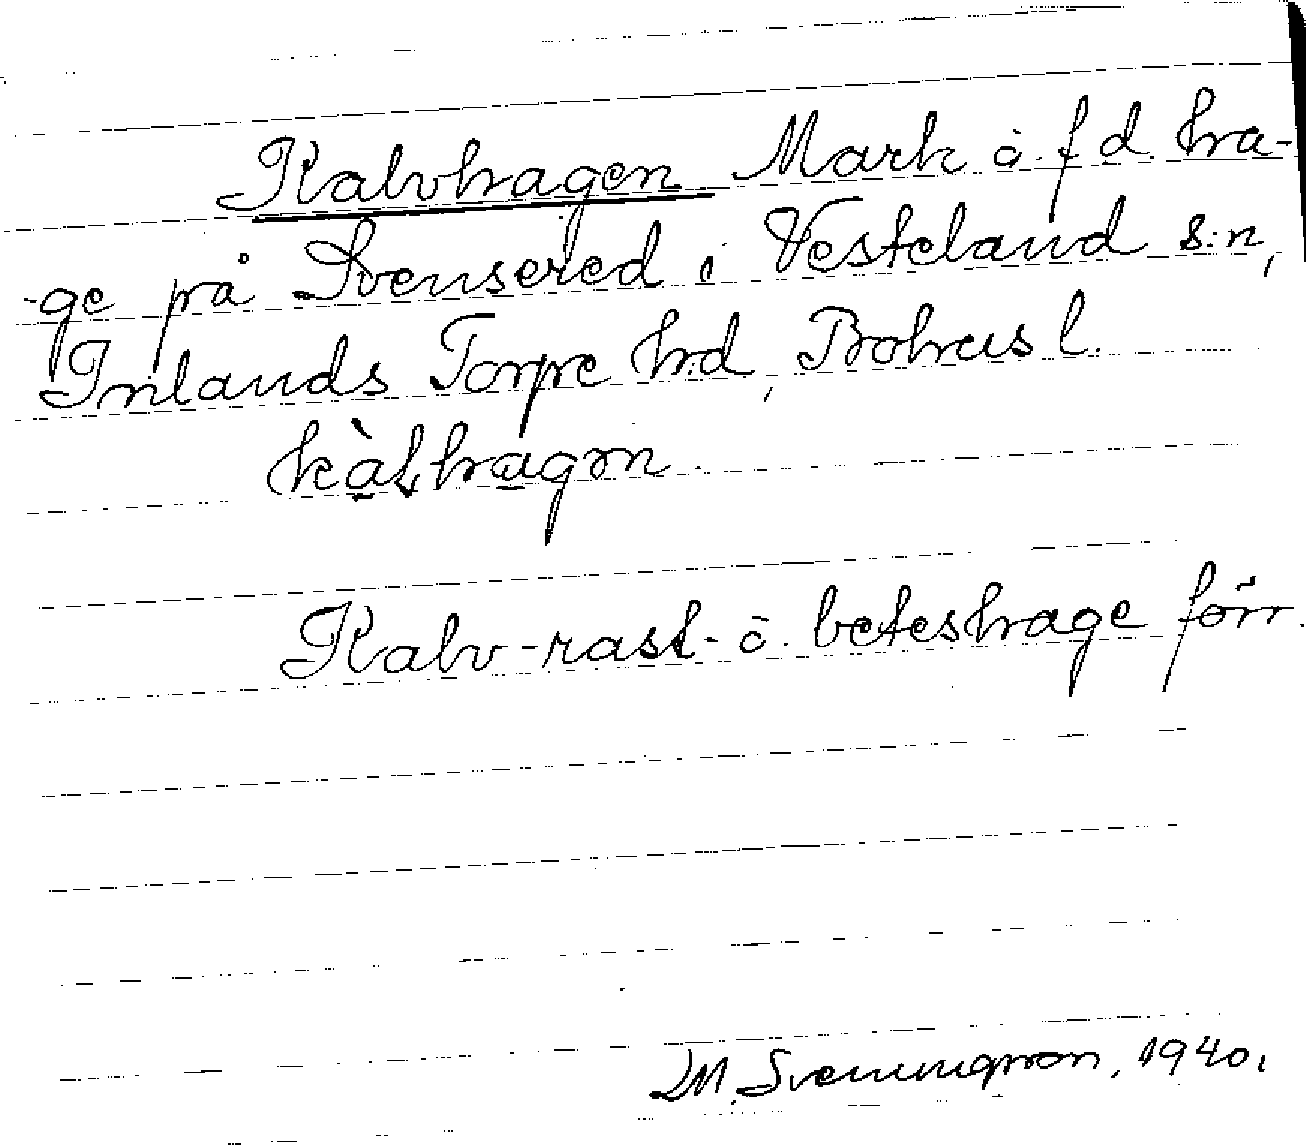 Kalvhagen Mark o. f d. ha-
-ge på Svensered i Vesteland s:n,
Inlands Torpe hd, Bohusl.
kàlhagen
Kalv-rast- o. beteshage förr.
M. Svenungson, 1940.